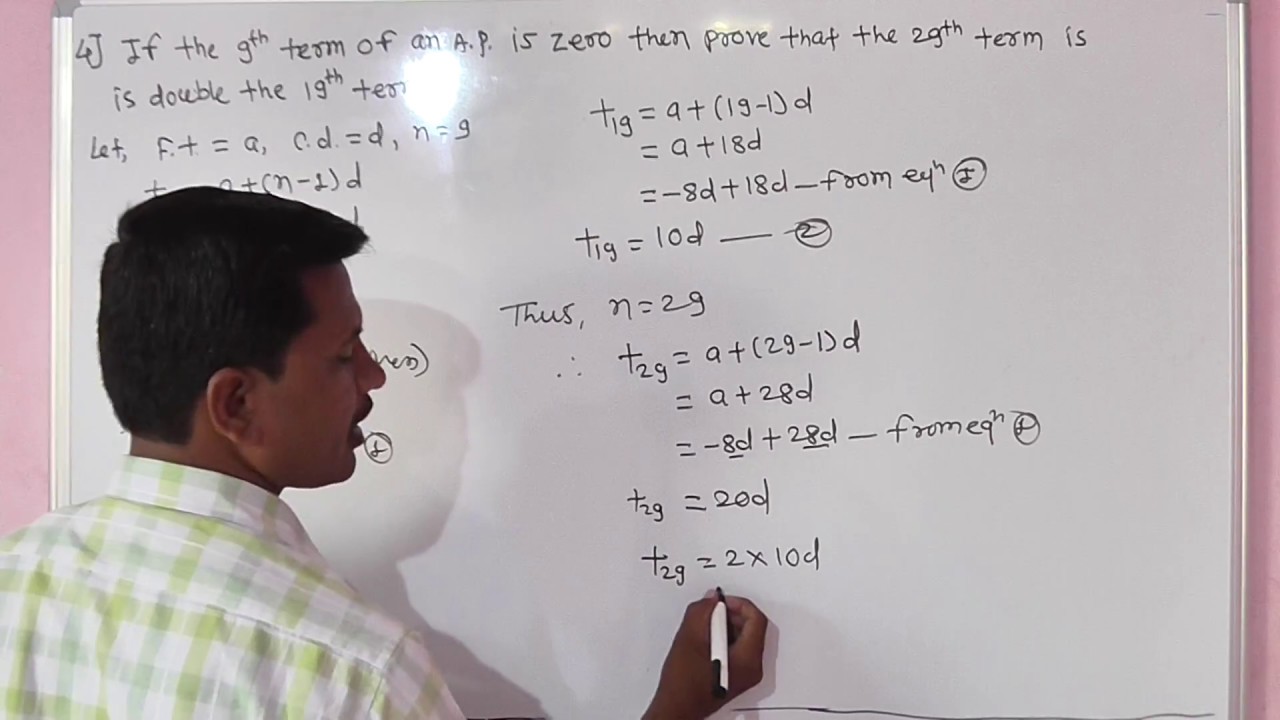 4] If the 9th term of an A.P. is zero then prove that the 29th term is
is double the 19th ter
Let, F.t. = a, C.d. = d, n = 9
+(n-1)d
d
t19 = a+(19-1)d
= a+18d
= -8d+18d — from eqn ①
t19 = 10d — ②
Thus, n = 29
∴ t29 = a+(29-1)d
= a+28d
= -8d + 28d — from eqn ①
t29 = 20d
t29 = 2×10d
①